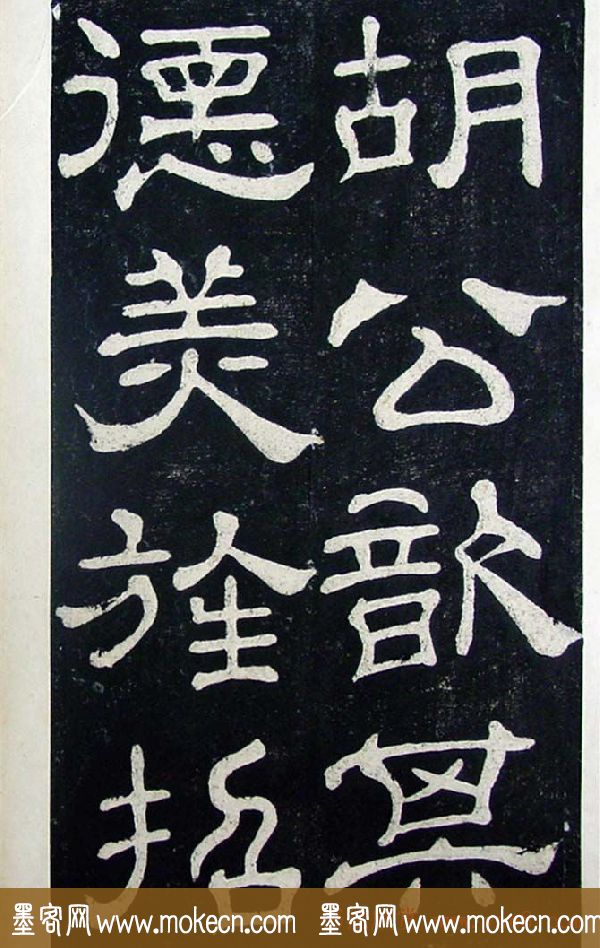 胡公歆其
德美旌招
墨客网 www.mokecn.com 墨客网 www.mokecn.com